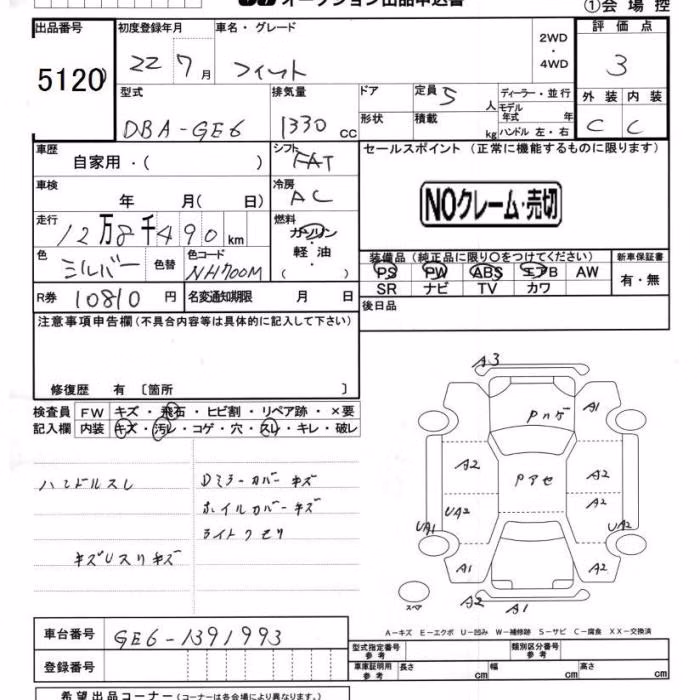 オークション出品申込書
①会場控
出品番号
5120
初度登録年月
22 7月
車名・グレード
フィット
2WD
・
4WD
評価点
3
型式
DBA-GE6
排気量
1330 cc
ドア
形状
定員 5 人
積載 kg
ディーラー・並行
モデル年式 年
ハンドル 左・右
外装 内装
C C
車歴
自家用・( )
シフト
FAT
セールスポイント (正常に機能するものに限ります)
NOクレーム・売切
車検
年 月( 日)
冷房
AC
走行
12万8千490km
燃料
ガソリン
・
軽油
・
( )
色
シルバー
色替
色コード
NH700M
装備品 (純正品に限り〇をつけてください)
PS PW ABS エアB AW
SR ナビ TV カワ
新車保証書
有・無
R券 10810 円
名変通知期限 月 日
後日品
注意事項申告欄(不具合内容等は具体的に記入して下さい)
修復歴 有〔箇所 〕
検査員記入欄
FW キズ・飛石・ヒビ割・リペア跡・×要
内装 キズ・汚レ・コゲ・穴・スレ・キレ・破レ
ハンドルスレ
Dミラーカバーキズ
ホイルカバーキズ
ライトクモリ
キズUスリキズ
A3
Pハゲ
A1
A2
Pアセ
A2
UA2
A2
UA1
UA2
A1
A2
スペア
A2
A1
A-キズ E-エクボ U-凹み W-補修跡 S-サビ C-腐食 XX-交換済
車台番号
GE6-1391993
登録番号
型式指定番号 参考
類別区分番号 参考
車庫証明用 参考
長さ cm 幅 cm 高さ cm
希望出品コーナー(コーナーは各会場により異なります。)